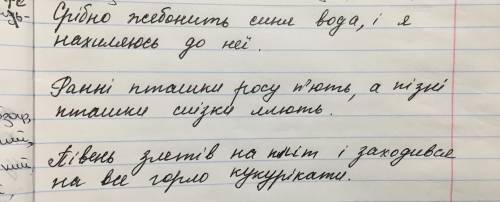 Срібно жебонить синя вода, і я
нахиляюсь до неї.
Ранні пташки росу п'ють, а пізні
пташки слізки ллють.
Півень злетів на пліт і заходився
на все горло кукурікати.